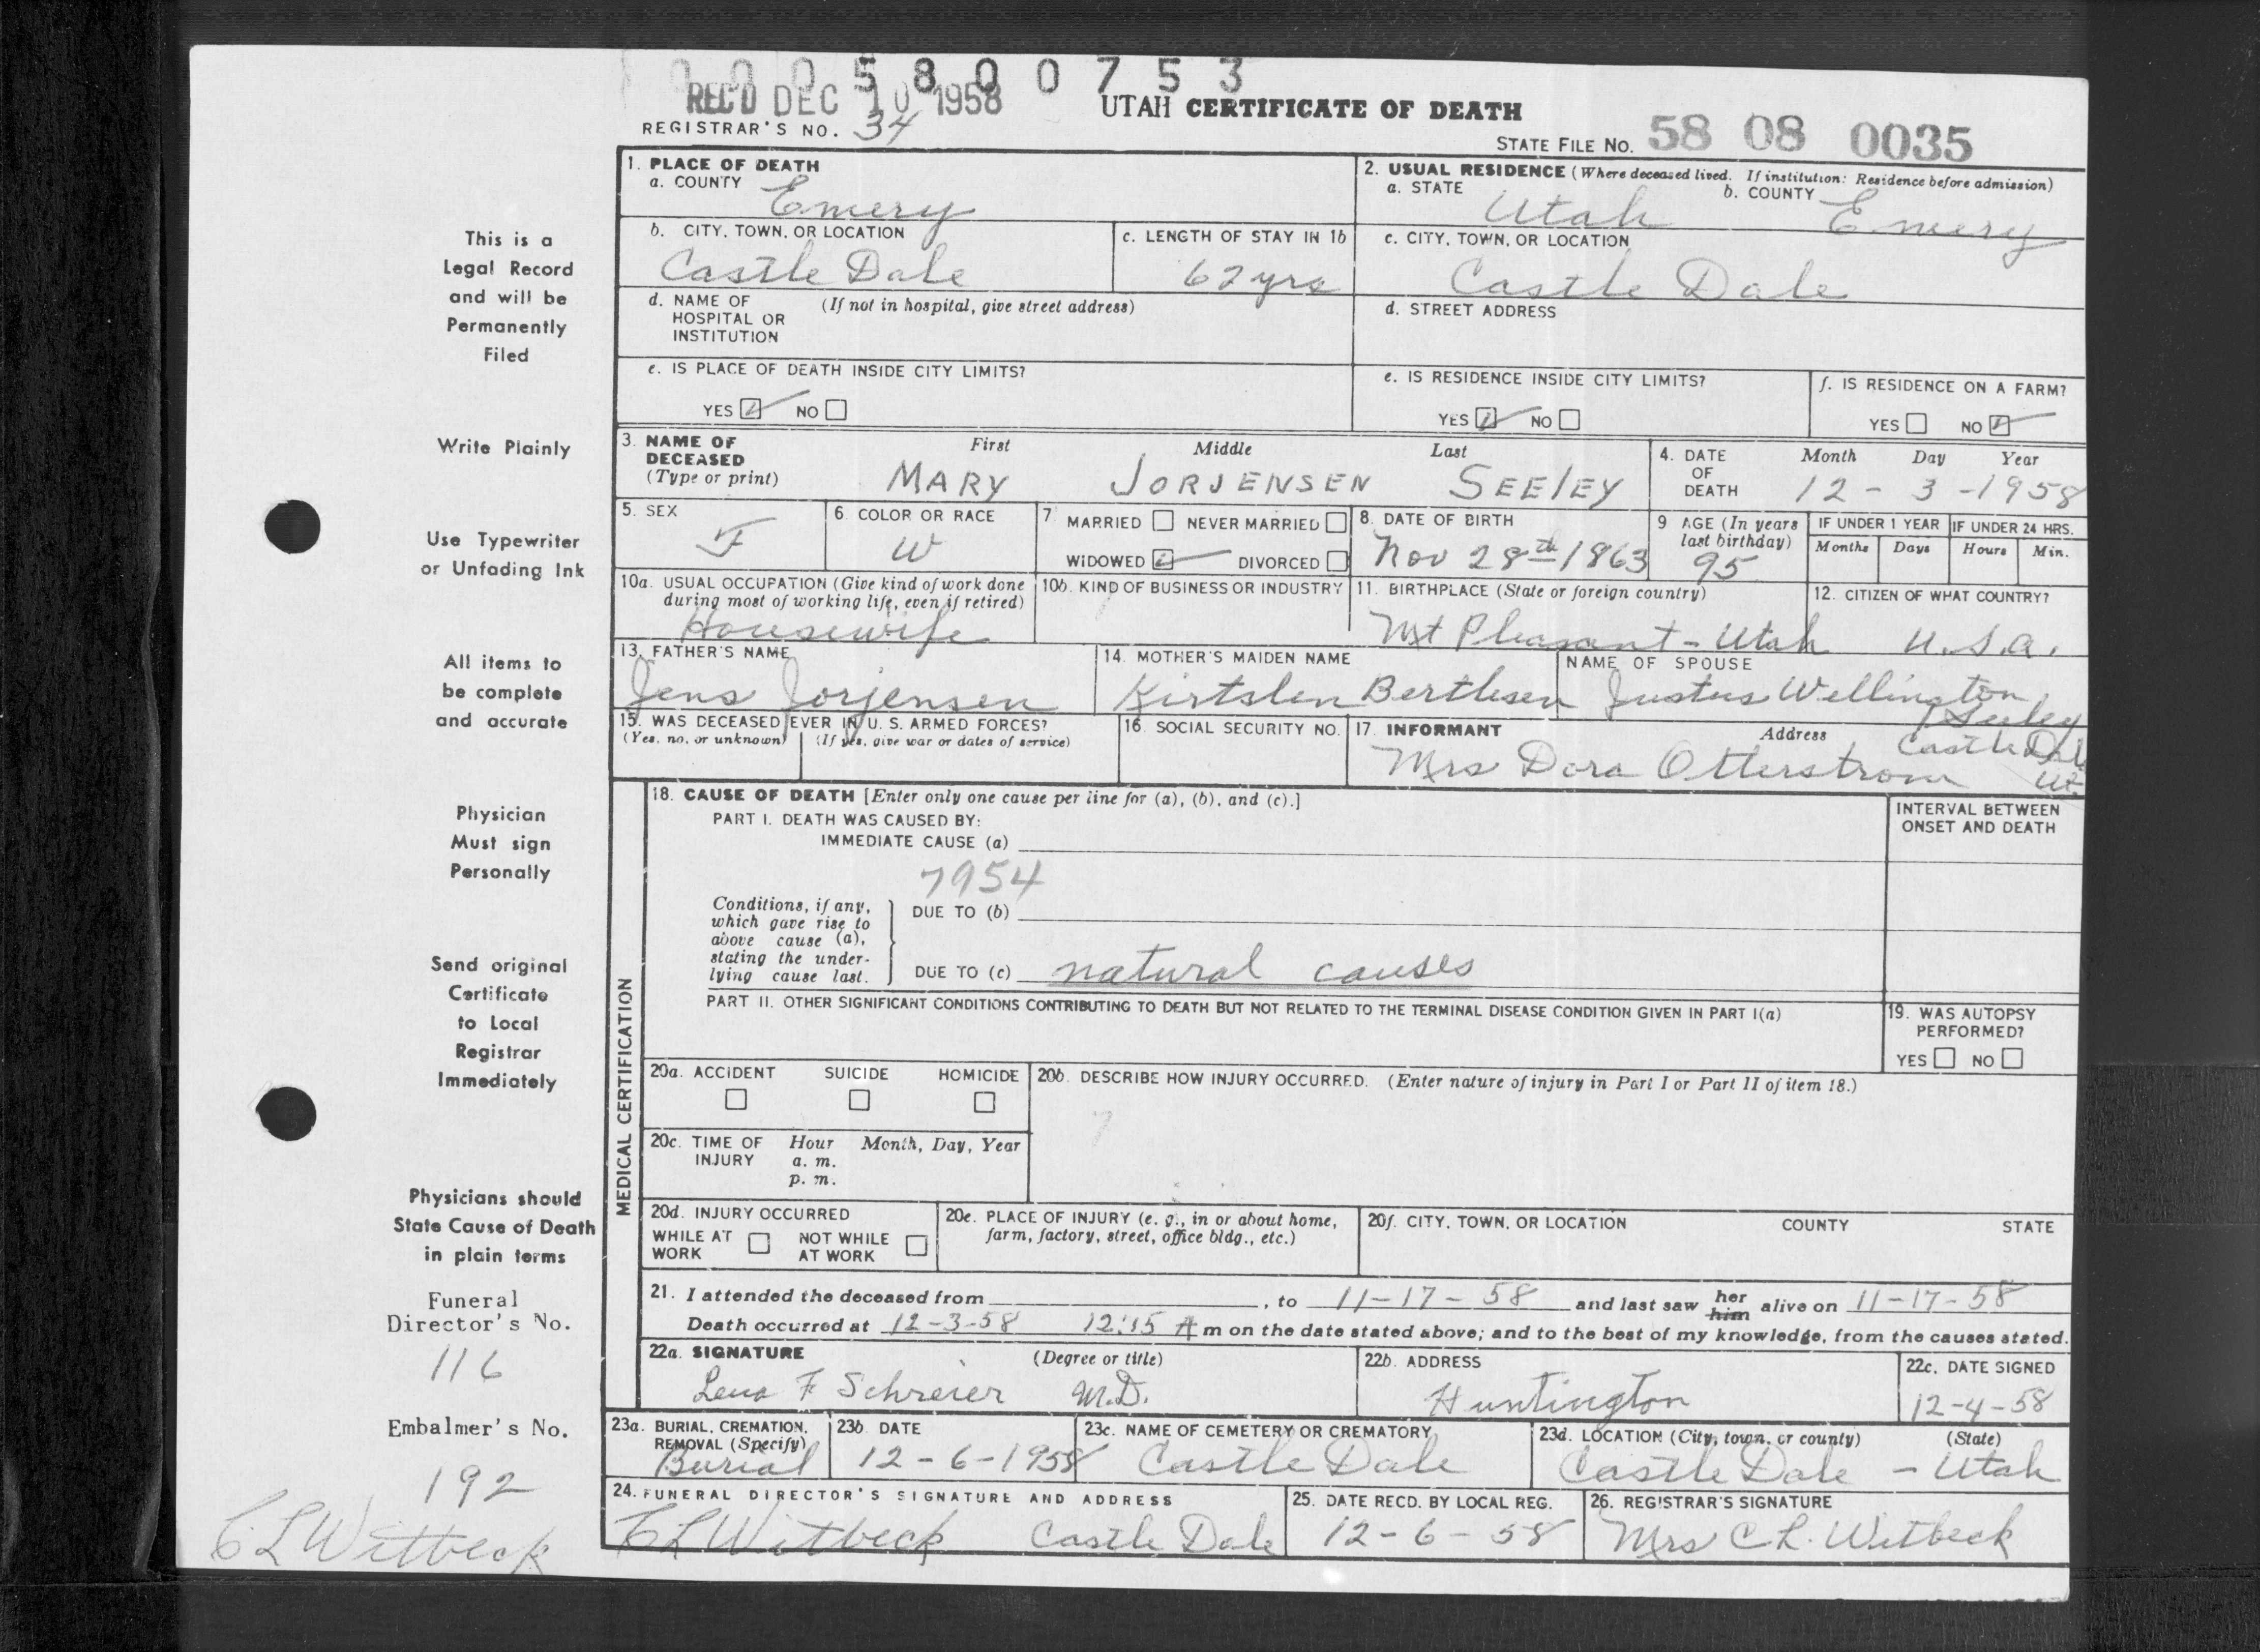 0 0 0 5 8 0 0 7 5 3
REC'D DEC 10 1958
UTAH CERTIFICATE OF DEATH
REGISTRAR'S NO. 34
STATE FILE NO. 58 08 0035
1. PLACE OF DEATH
a. COUNTY Emery
2. USUAL RESIDENCE (Where deceased lived. If institution: Residence before admission)
a. STATE Utah b. COUNTY Emery
b. CITY, TOWN, OR LOCATION Castle Dale
c. LENGTH OF STAY IN 1b 62 yrs
c. CITY, TOWN, OR LOCATION Castle Dale
d. NAME OF HOSPITAL OR INSTITUTION (If not in hospital, give street address)
d. STREET ADDRESS
e. IS PLACE OF DEATH INSIDE CITY LIMITS?
YES NO
e. IS RESIDENCE INSIDE CITY LIMITS?
YES NO
f. IS RESIDENCE ON A FARM?
YES NO
3. NAME OF DECEASED (Type or print)
First Middle Last
MARY JORJENSEN SEELEY
4. DATE OF DEATH Month Day Year
12 - 3 - 1958
5. SEX F
6. COLOR OR RACE W
7. MARRIED NEVER MARRIED
WIDOWED DIVORCED
8. DATE OF BIRTH Nov 28th 1863
9. AGE (In years last birthday) 95
IF UNDER 1 YEAR Months Days
IF UNDER 24 HRS. Hours Min.
10a. USUAL OCCUPATION (Give kind of work done during most of working life, even if retired)
Housewife
10b. KIND OF BUSINESS OR INDUSTRY
11. BIRTHPLACE (State or foreign country)
Mt Pleasant - Utah
12. CITIZEN OF WHAT COUNTRY?
U.S.A.
13. FATHER'S NAME
Jens Jorjensen
14. MOTHER'S MAIDEN NAME
Kirtslen Bertlesen
NAME OF SPOUSE
Justus Wellington Seeley
15. WAS DECEASED EVER IN U. S. ARMED FORCES?
(Yes, no, or unknown) (If yes, give war or dates of service)
16. SOCIAL SECURITY NO.
17. INFORMANT Address
Mrs Dora Otterstrom Castle Dale Ut.
MEDICAL CERTIFICATION
18. CAUSE OF DEATH [Enter only one cause per line for (a), (b), and (c).]
PART I. DEATH WAS CAUSED BY:
IMMEDIATE CAUSE (a)
INTERVAL BETWEEN ONSET AND DEATH
7954
Conditions, if any, which gave rise to above cause (a), stating the underlying cause last.
DUE TO (b)
DUE TO (c) natural causes
PART II. OTHER SIGNIFICANT CONDITIONS CONTRIBUTING TO DEATH BUT NOT RELATED TO THE TERMINAL DISEASE CONDITION GIVEN IN PART I(a)
19. WAS AUTOPSY PERFORMED?
YES NO
20a. ACCIDENT SUICIDE HOMICIDE
20b. DESCRIBE HOW INJURY OCCURRED. (Enter nature of injury in Part I or Part II of item 18.)
20c. TIME OF INJURY Hour Month, Day, Year
a. m.
p. m.
20d. INJURY OCCURRED
WHILE AT WORK NOT WHILE AT WORK
20e. PLACE OF INJURY (e. g., in or about home, farm, factory, street, office bldg., etc.)
20f. CITY, TOWN, OR LOCATION COUNTY STATE
21. I attended the deceased from , to 11-17-58 and last saw her him alive on 11-17-58
Death occurred at 12-3-58 12:15 A m on the date stated above; and to the best of my knowledge, from the causes stated.
22a. SIGNATURE (Degree or title)
Lena F Schreier M.D.
22b. ADDRESS
Huntington
22c. DATE SIGNED
12-4-58
23a. BURIAL, CREMATION, REMOVAL (Specify)
Burial
23b. DATE
12-6-1958
23c. NAME OF CEMETERY OR CREMATORY
Castle Dale
23d. LOCATION (City, town, or county) (State)
Castle Dale - Utah
24. FUNERAL DIRECTOR'S SIGNATURE AND ADDRESS
C L Witbeck Castle Dale
25. DATE RECD. BY LOCAL REG.
12-6-58
26. REGISTRAR'S SIGNATURE
Mrs C. L. Witbeck
This is a
Legal Record
and will be
Permanently
Filed
Write Plainly
Use Typewriter
or Unfading Ink
All items to
be complete
and accurate
Physician
Must sign
Personally
Send original
Certificate
to Local
Registrar
Immediately
Physicians should
State Cause of Death
in plain terms
Funeral
Director's No.
116
Embalmer's No.
192
C L Witbeck